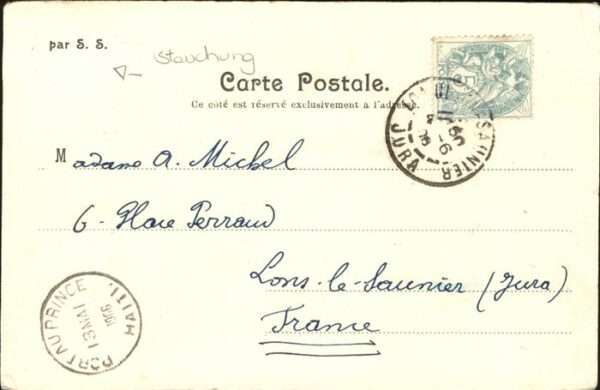 par S. S.
Stauchung
Carte Postale.
Ce côté est réservé exclusivement a l'adresse.
Madame A. Michel
6 - Place Perraud
Lons-le-Saunier (Jura)
France
SAUNIER
JURA
PORT AU PRINCE
HAITI.
13 MAI
1906